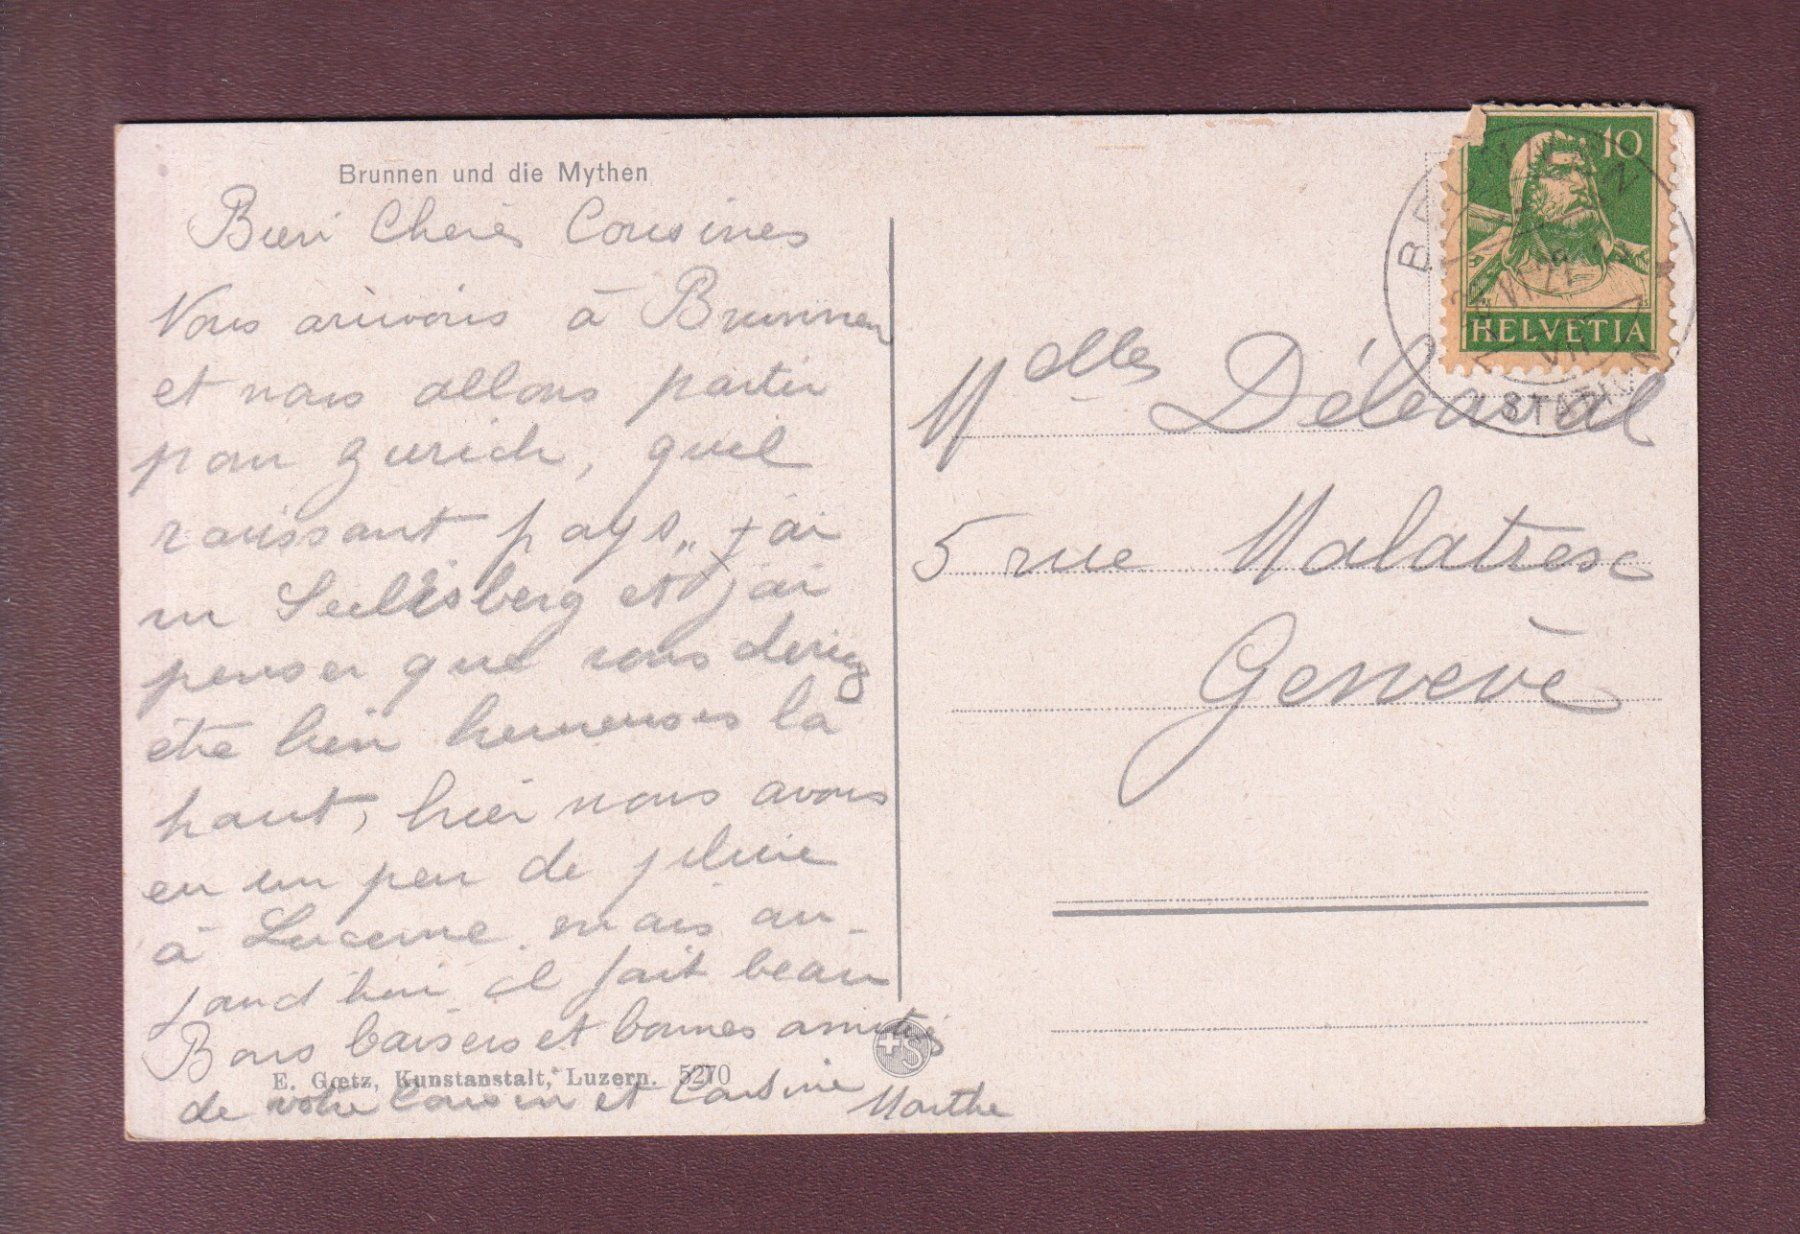 Brunnen und die Mythen
Bien Chères Cousines
Nous arrivons à Brunnen
et nous allons partir
pour Zurich, quel
ravissant pays,, j'ai
vu Seelisberg et j'ai
penser que vous deviez
être bien heureuses là
haut, hier nous avons
eu un peu de pluie
à Lucerne, mais au-
jourd'hui il fait beau
Bons baisers et bonnes amitiés
E. Gœtz, Kunstanstalt, Luzern. 5270
de votre Cousin et Cousine Marthe
+S
10
HELVETIA
STATION
VII
Melles
5 rue Malatrex
Genève